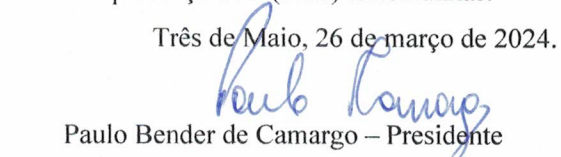 Três de Maio, 26 de março de 2024.
Paulo Camargo
Paulo Bender de Camargo – Presidente